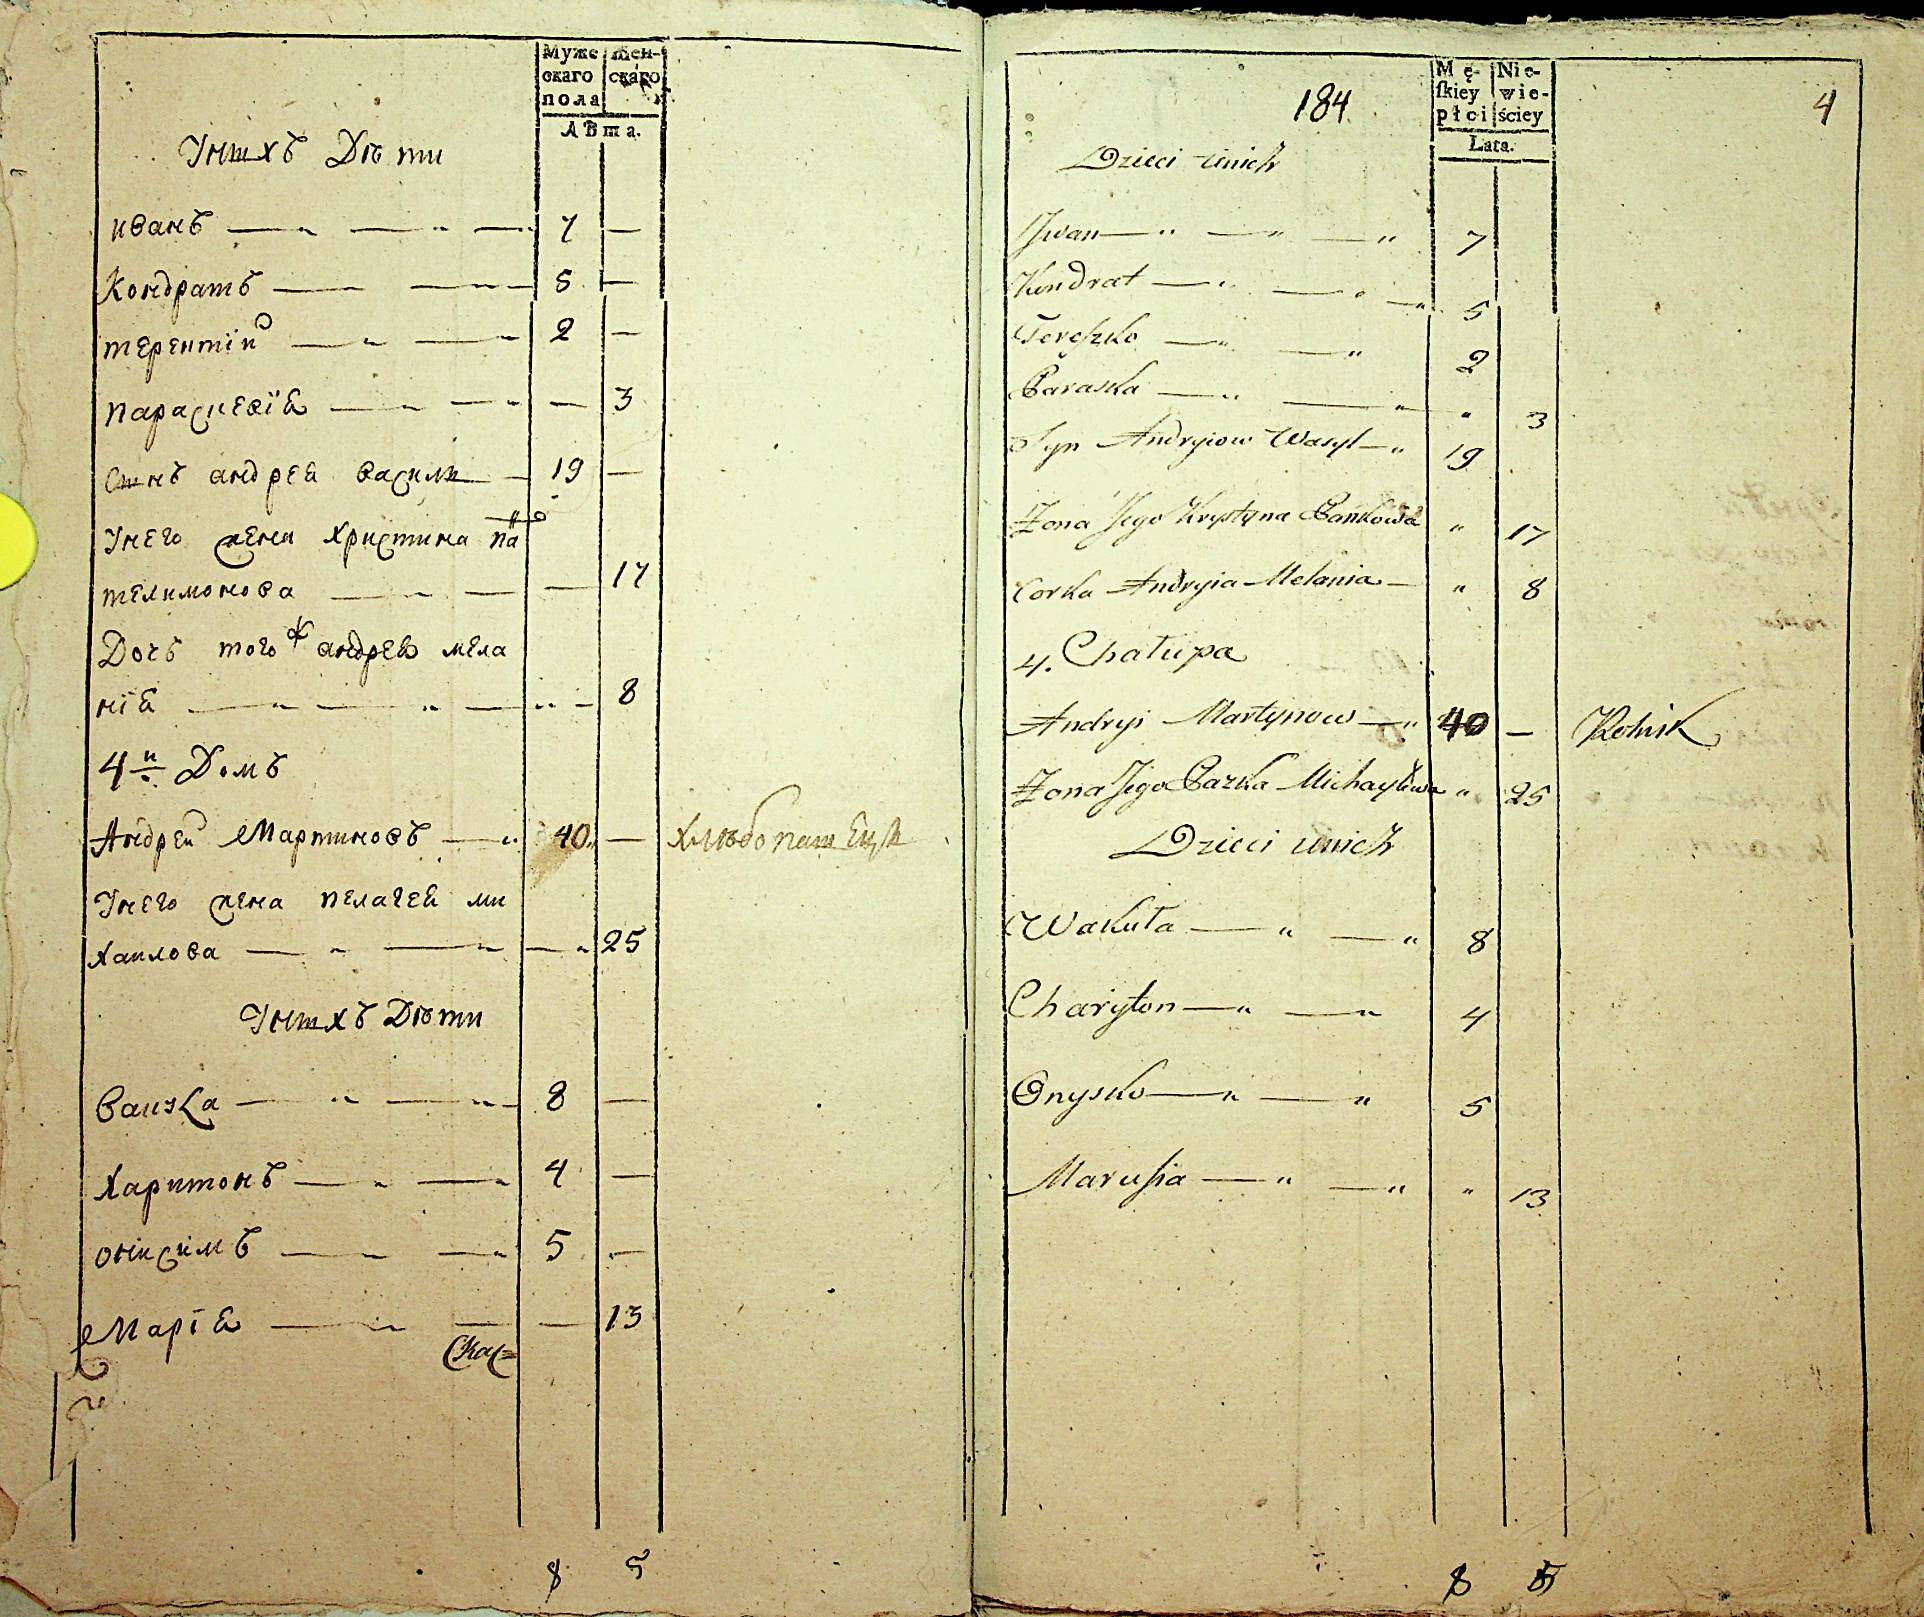 Муже
скаго
пола
Жен-
скаго
Лѣта.
Унихъ Дѣти
иванъ 7 —
Кондратъ 5 —
терентїи 2 —
параскевїѧ — 3
Снъ андреѧ василь 19 —
Унего жена христина па
телимонова — 17
Дочь того ж андрея мела
нїѧ — 8
4й Домъ
Андреи Мартиновъ 40 — хлѣбопашецъ
Унего жена пелагеѧ ми
хаилова — 25
Унихъ Дѣти
8 —
харитонъ 4 —
онисимъ 5 —
Марїѧ — 13
8 5
184
Mę-
ſkiey
płci
Nie-
wie-
ściey
Lata.
4
Dzieci unich
Jwan 7
Kondrat 5
Tereszko 2
Paraska " 3
Syn Andryiow Wasyl 19
Zona Jego Krystyna Pankowa " 17
Corka Andryia Melania " 8
4. Chałupa
Andryi Martynow 40 — Rolnik
Zona Jego Pazka Michayłowa " 25
Dzieci unich
Wakuła 8
Charyton 4
Onysko 5
Marusia " 13
8 5